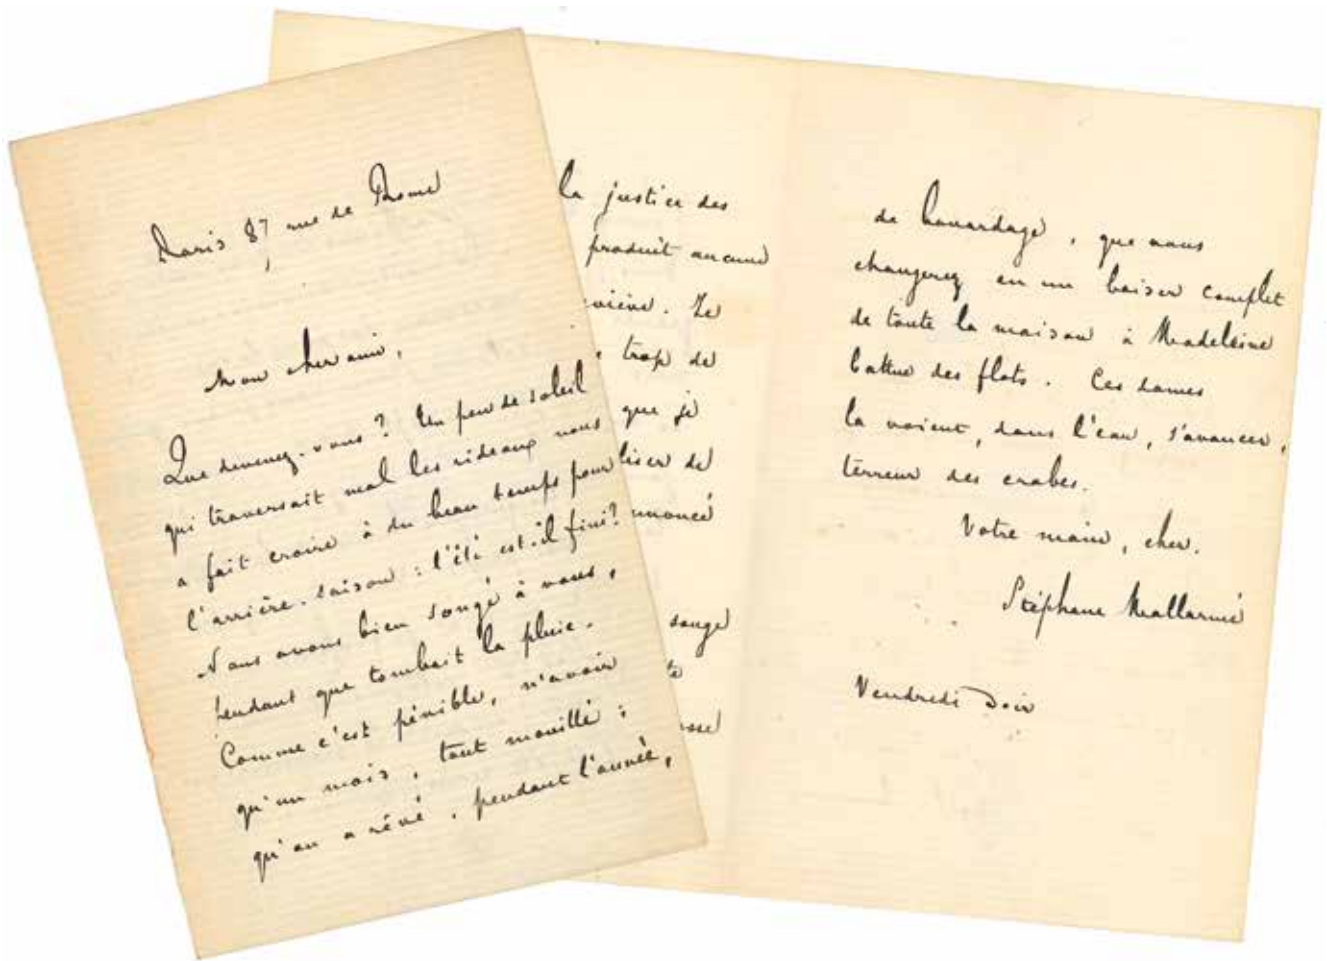 Paris 87 rue de Rome
Mon cher ami,
Que devenez-vous ? Un peu de soleil
qui traversait mal les rideaux nous
a fait croire à du beau temps pour
l'arrière-saison : l'été est-il fini ?
Nous avons bien songé à vous,
pendant que tombait la pluie.
Comme c'est pénible, n'avoir
qu'un mois, tout mouillé ;
qu'on a rêvé, pendant l'année,
la justice des
produit aucune
eviève. Le
, trop de
que je
liser de
nnoncé
songe
te
asse
de bavardage, que vous
changerez en un baiser complet
de toute la maison à Madeleine
battue des flots. Ces dames
la voient, dans l'eau, s'avancer,
terreur des crabes.
Votre main, cher.
Stéphane Mallarmé
Vendredi Soir